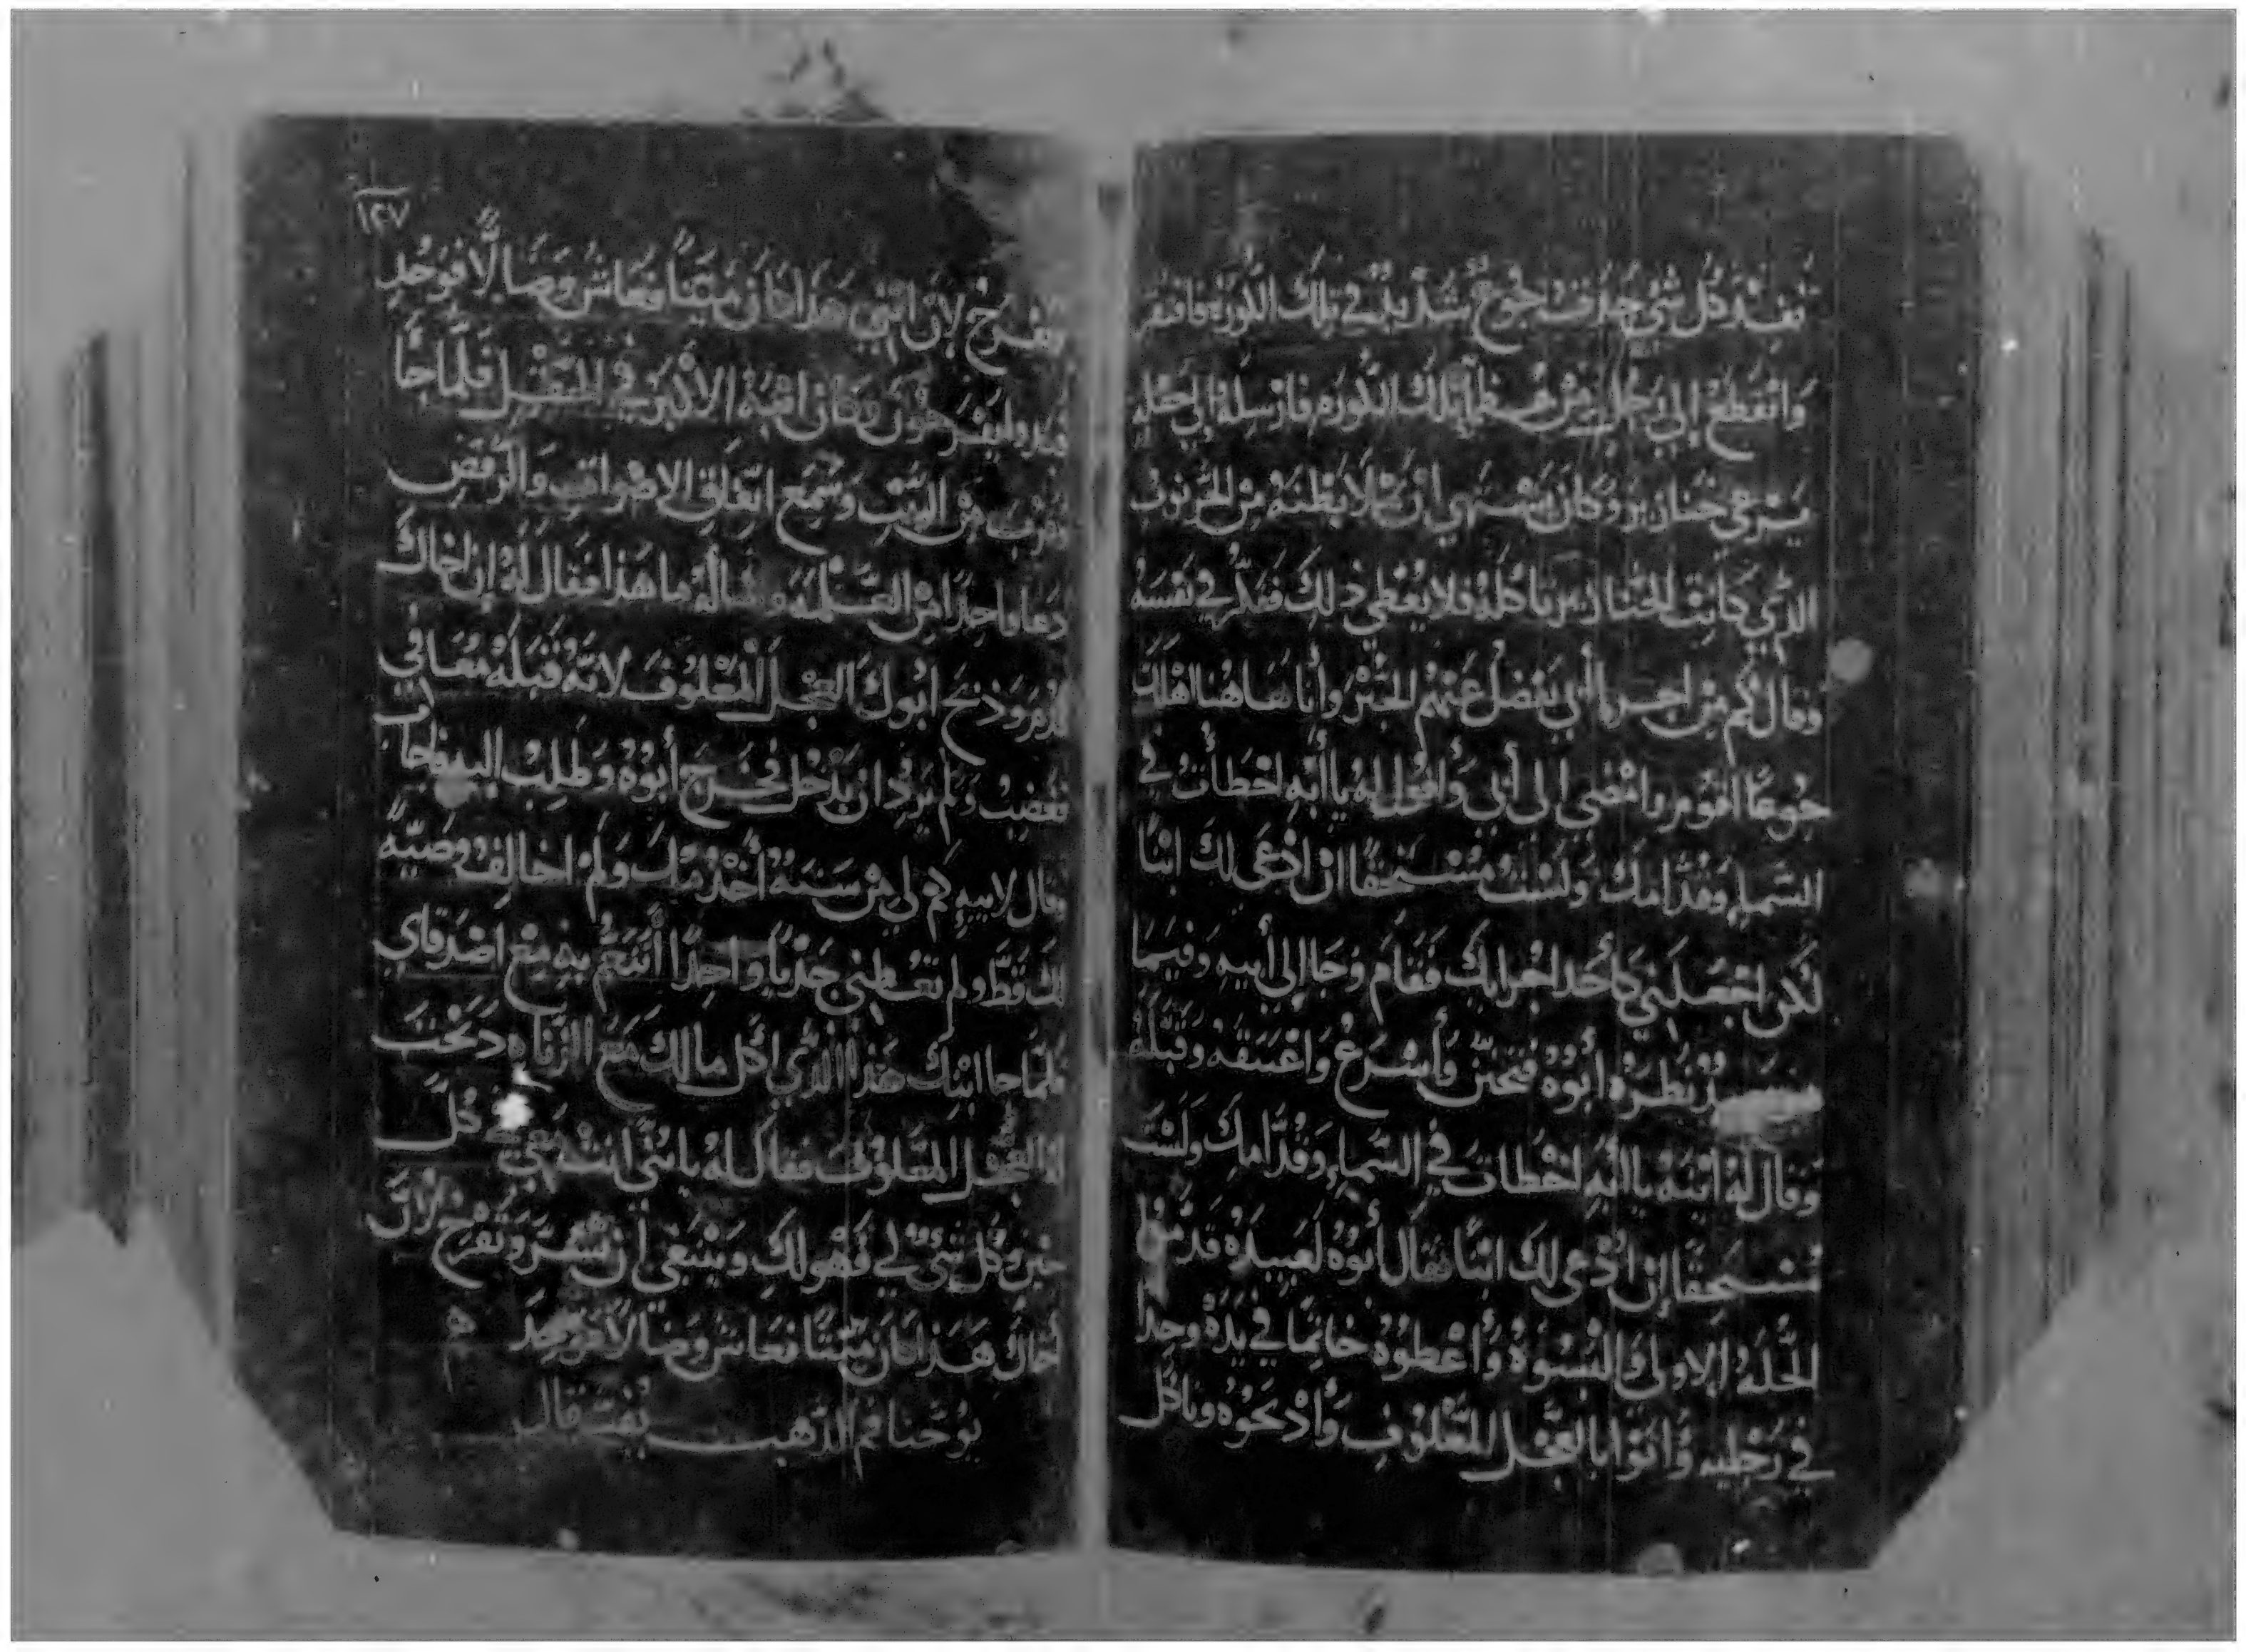 نفد كل شي حدث جوع شديد في تلك الكوره فافتقر
وانقطع الي رجل من عظما تلك الكوره فارسله الي حقله
يرعي خنازير وكان يشتهي ان يملا بطنه من الخرنوب
الذي كانت الخنازير تاكله فلا يعطي ذلك ففكر في نفسه
وقال كم من اجرا أبي يفضل عنهم الخبز وأنا هاهنا اهلك
جوعًا اقوم وامضي الى أبي وأقول له يا أبه اخطأت في
السماء وقدامك ولست مستحقًا ان ادعى لك ابنًا
لكن اجعلني كأحد اجرايك فقام وجا إلى أبيه وفيما
نظره أبوه فتحنن وأسرع واعتنقه وقبله
وقال له ابنه يا ابه اخطات في السماء وقدامك ولست
مستحقًا ان ادعى لك ابنًا فقال أبوه لعبيده قدموا
الحله الاولى والبسوه وأعطوه خاتمًا في يده وحذا
في رجليه وأتوا بالعجل المعلوف وأذبحوه وناكل
١٢٧
ونفرح لان ابني هذا كان ميتًا فعاش وضالًا فوجد
فبدوا يفرحون وكان ابنه الاكبر في الحقل فلما جا
وقرب من البيت وسمع اتفاق الاصوات والرقص
دعا واحدًا من الغلمه وساله ما هذا فقال له ان اخاك
قدم وذبح ابوك العجل المعلوف لانه قبله معافي
فغضب ولم يرد ان يدخل فخرج أبوه وطلب اليه فاجاب
وقال لابيه كم لي من سنة أخدمك ولم اخالف وصيةً
لك قط ولم تعطني جديًا واحدًا أتنعم به مع اصدقاي
فلما جا ابنك هذا الذي اكل مالك مع الزناه ذبحت
له العجل المعلوف فقال له يا بني انت معي في كل
حين وكل شي لي فهو لك وينبغي ان نسر ونفرح لان
أخاك هذا كان ميتًا فعاش وضالًا فوجد
يوحنا فم الذهب يفسر قال